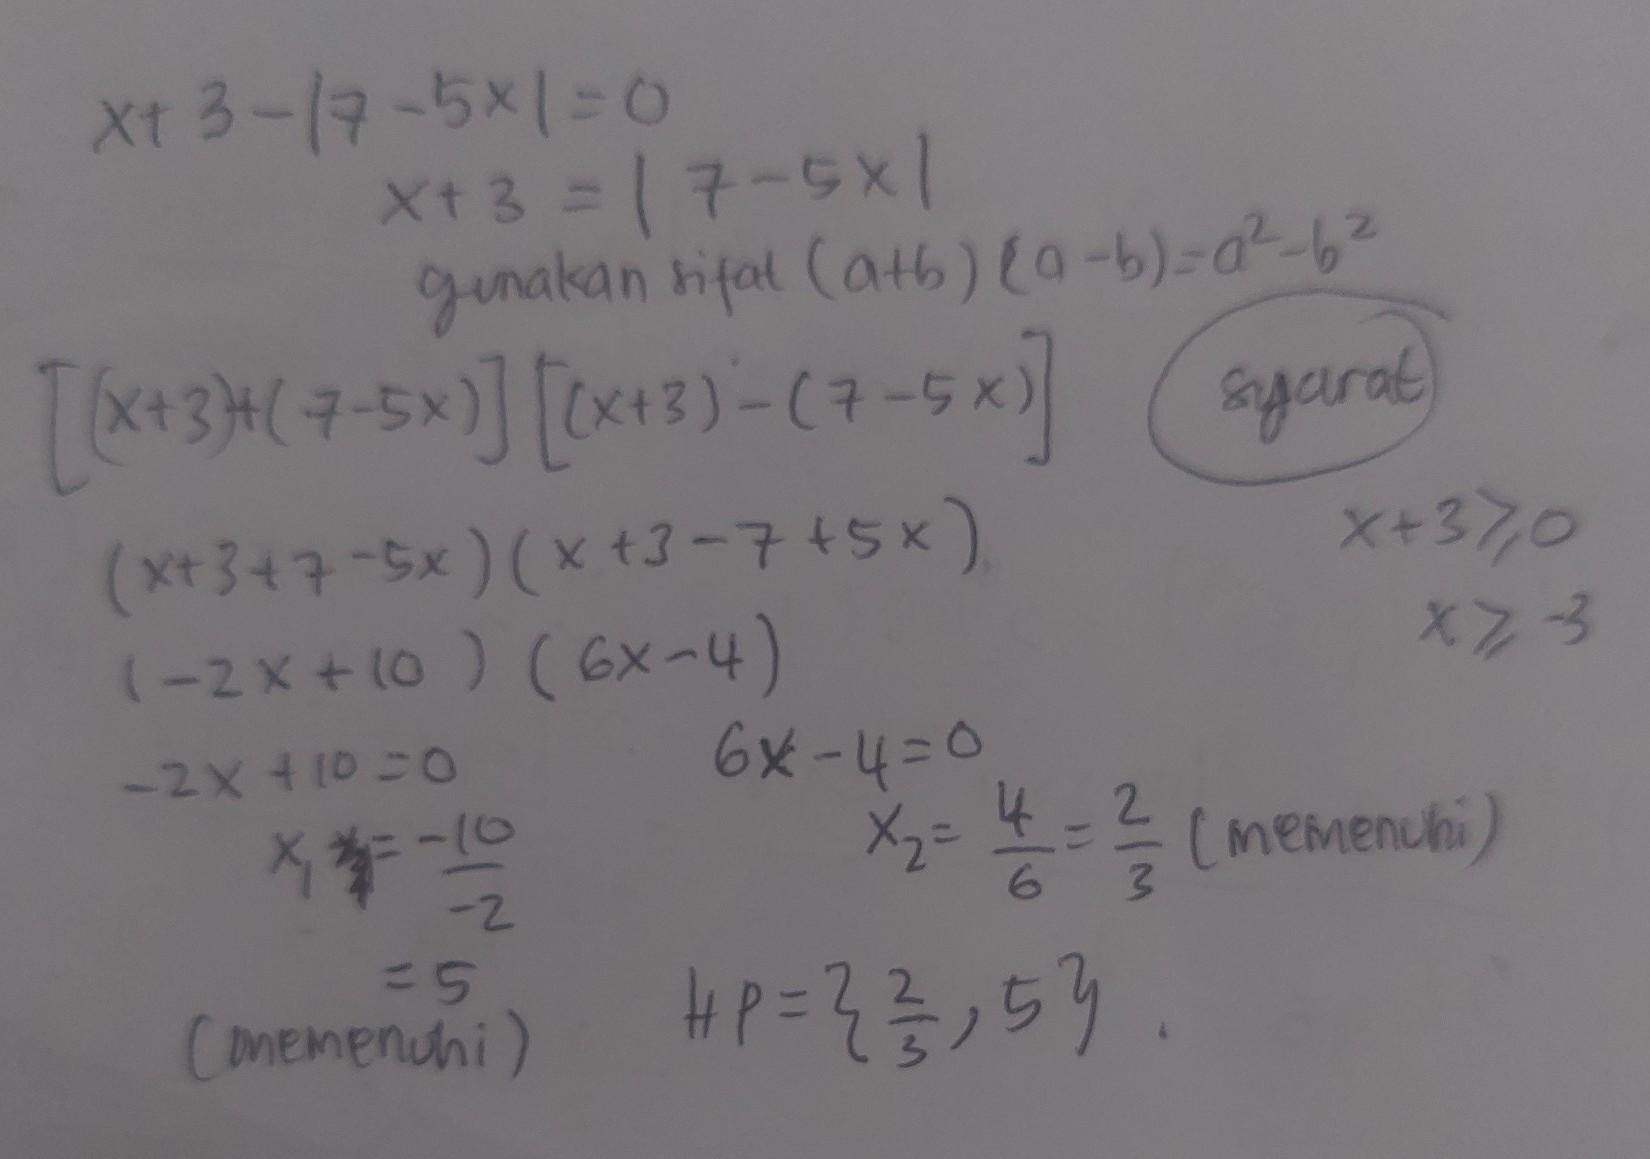 x+3-|7-5x|=0
x+3 = |7-5x|
gunakan sifat (a+b)(a-b)=a²-b²
[(x+3)+(7-5x)][(x+3)-(7-5x)]
syarat
(x+3+7-5x)(x+3-7+5x)
x+3≥0
(-2x+10)(6x-4)
x≥-3
-2x+10=0
6x-4=0
x₁=-10/-2
x₂=4/6=2/3 (memenuhi)
=5
(memenuhi)
HP={2/3,5}.